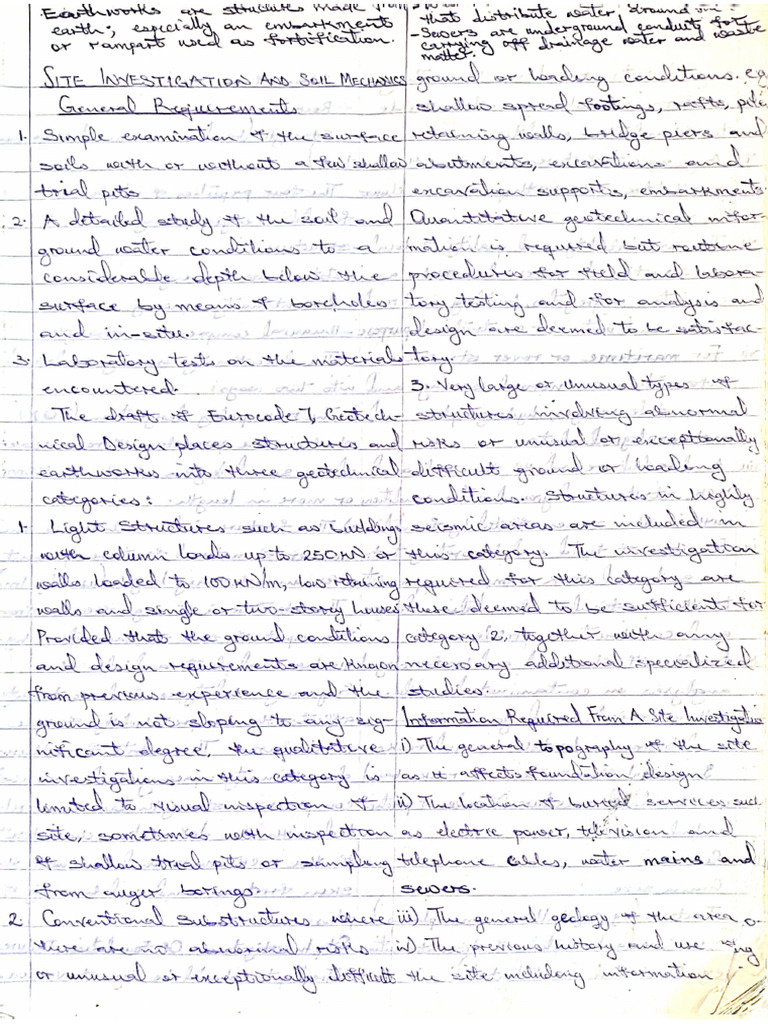 Earthworks are structures made from
earth; especially an embankment
or rampart used as fortification.
SITE INVESTIGATION AND SOIL MECHANICS
General Requirements
1. Simple examination of the surface
soils with or without a few shallow
trial pits
2. A detailed study of the soil and
ground water conditions to a
considerable depth below the
surface by means of boreholes
and in-situ.
3. Laboratory tests on the materials
encountered.
The draft of Eurocode 7, Geotech-
nical Design places structures and
earthworks into three geotechnical
categories:
1. Light Structures such as buildings
with column loads up to 250KN or
walls loaded to 100KN/m, low retaining
walls and single or two-storey houses
Provided that the ground conditions
and design requirements are known
from previous experience and the
ground is not sloping to any sig-
nificant degree, the qualitative
investigations in this category is
limited to visual inspection of
site, sometimes with inspection
of shallow trial pits or sampling
from auger borings.
2. Conventional substructures where
there are no abnormal risks
or unusual or exceptionally difficult
- that distribute water around
- Sewers are underground conduits for
carrying off drainage water and waste
matter.
ground or loading conditions. e.g
shallow spread footings, rafts, piles
retaining walls, bridge piers and
abutments, excavations and
excavation supports, embankments.
Quantitative geotechnical infor-
mation is required but routine
procedures for field and labora-
tory testing and for analysis and
design are deemed to be satisfac-
tory.
3. Very large or unusual types of
structures involving abnormal
risks or unusual or exceptionally
difficult ground or loading
conditions. Structures in highly
seismic areas are included in
this category. The investigation
required for this category are
those deemed to be sufficient for
category 2, together with any
necessary additional specialized
studies.
Information Required From A Site Investigation
i) The general topography of the site
as it affects foundation design
ii) The location of buried services such
as electric power, television and
telephone cables, water mains and
sewers.
iii) The general geology of the area
iv) The previous history and use
the site including information